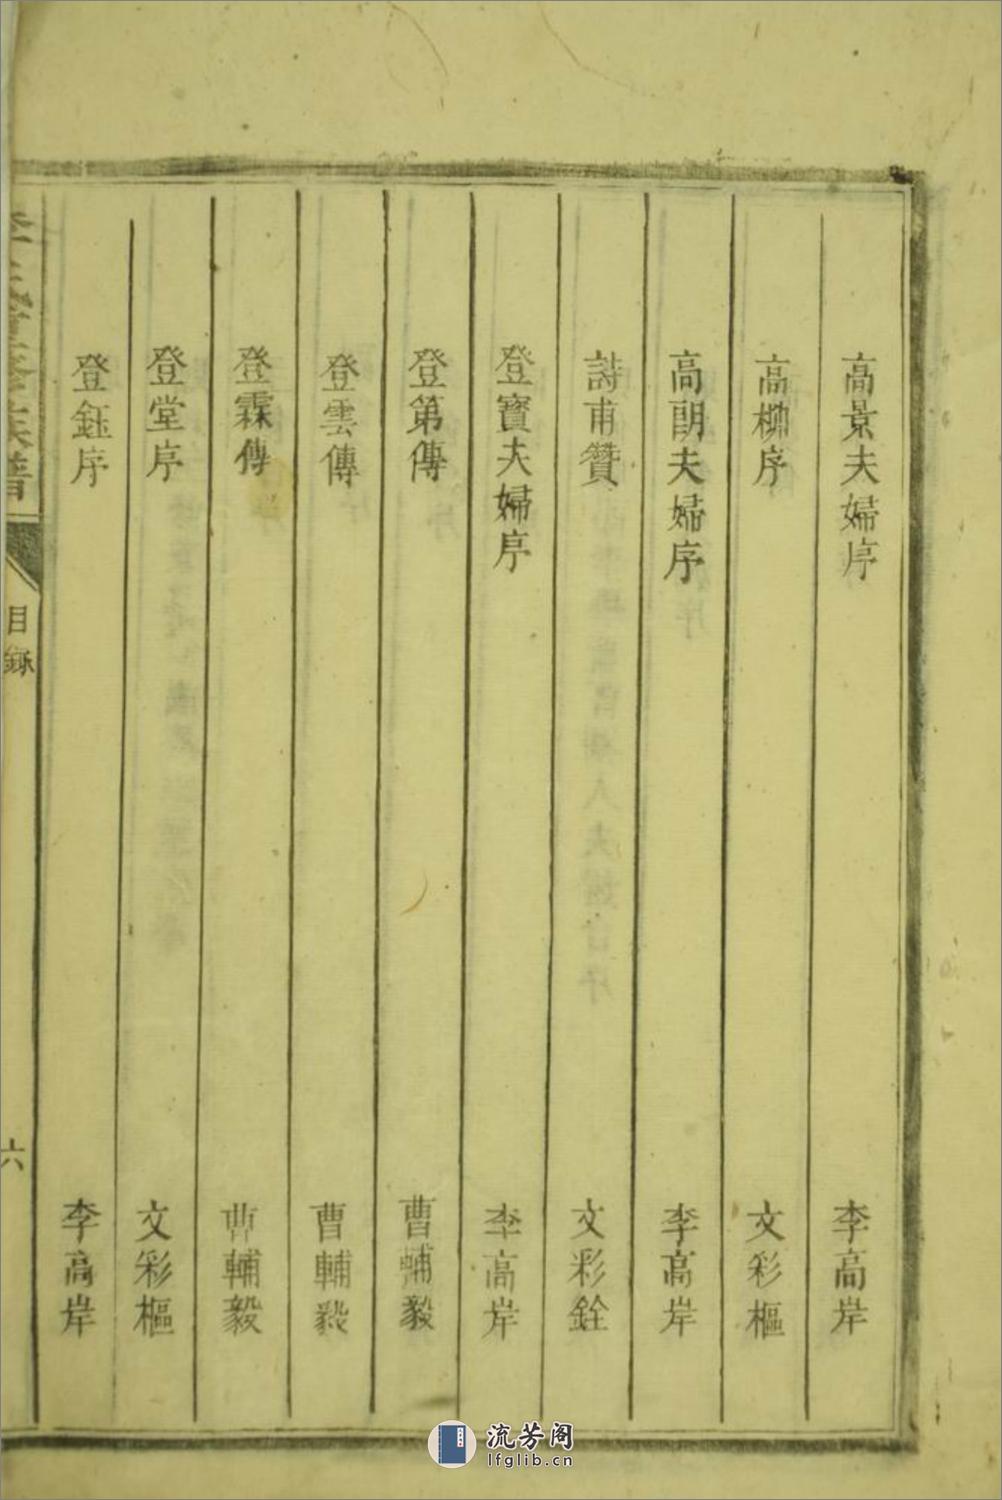 高景夫婦序 李高岸
高柳序 文彩樞
高朗夫婦序 李高岸
詩甫贊 文彩銓
登寶夫婦序 李高岸
登第傳 曹輔毅
登雲傳 曹輔毅
登霖傳 曹輔毅
登堂序 文彩樞
登鈺序 李高岸
族譜
目錄
六
流芳阁
lfglib.cn